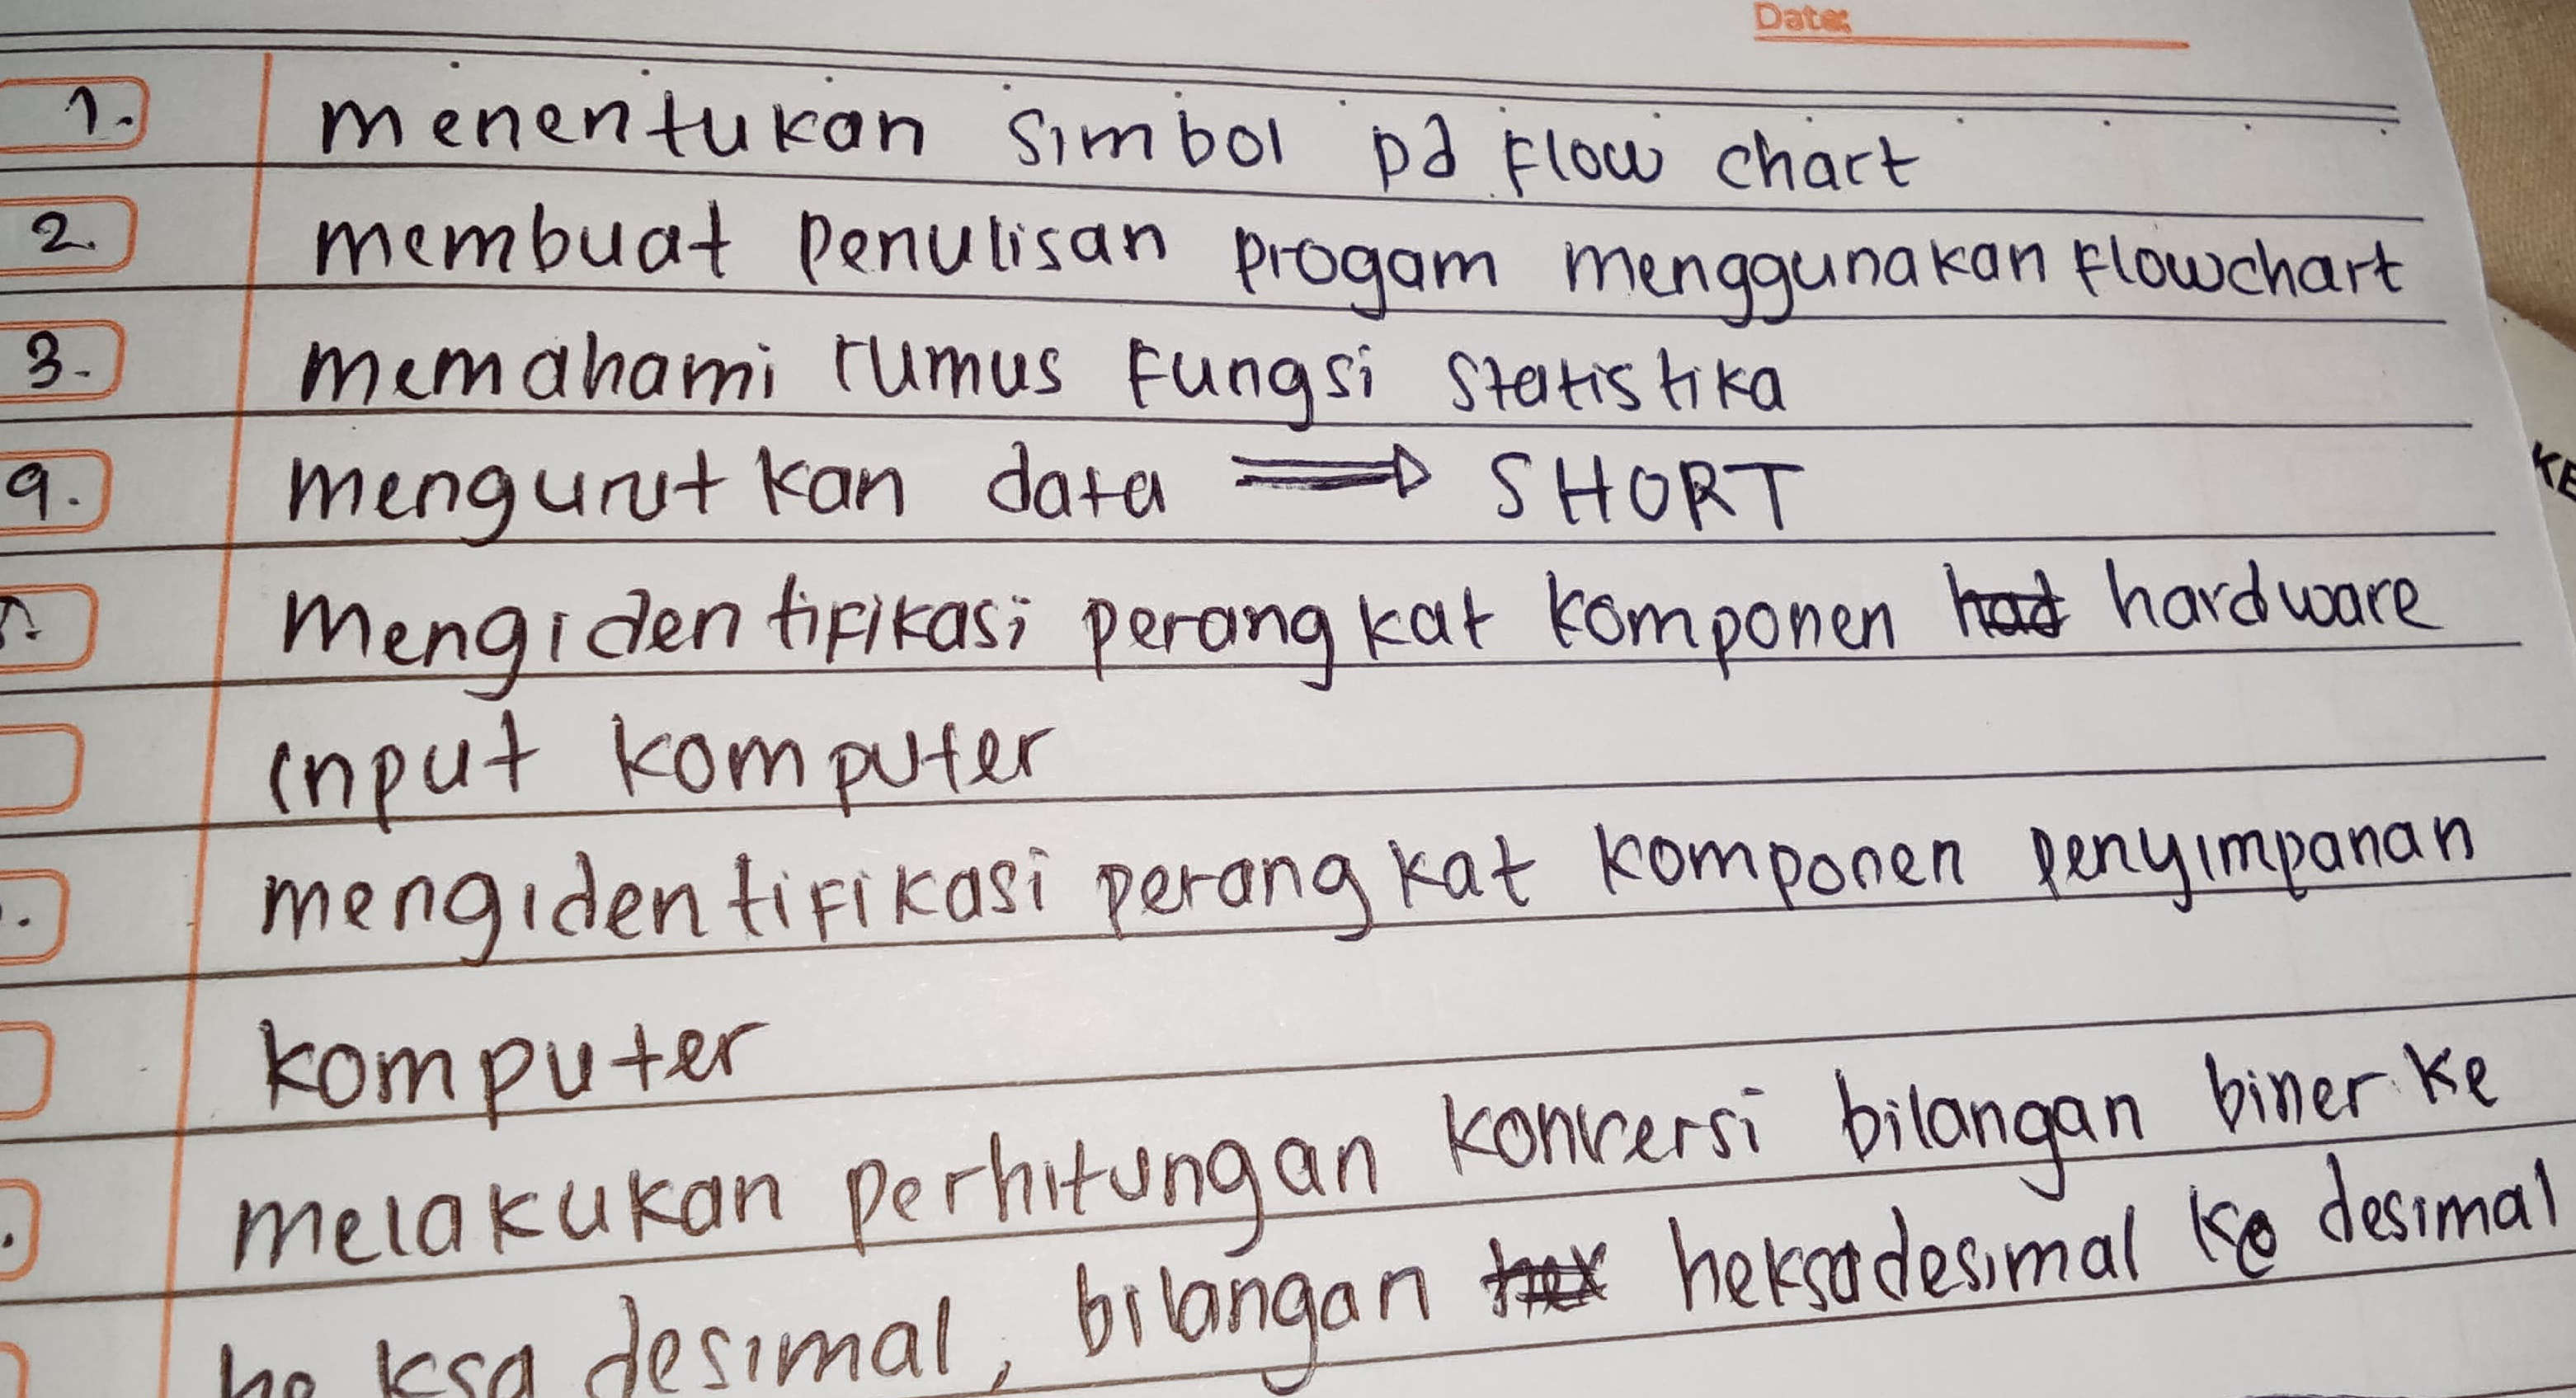 Date:
1. menentukan simbol pd flow chart
2. membuat penulisan progam menggunakan flowchart
3. memahami rumus fungsi statistika
4. mengurutkan data ⇒ SHORT
mengidentifikasi perangkat komponen had hardware
input komputer
mengidentifikasi perangkat komponen penyimpanan
komputer
melakukan perhitungan konversi bilangan biner ke
heksa desimal, bilangan hex heksadesimal ke desimal